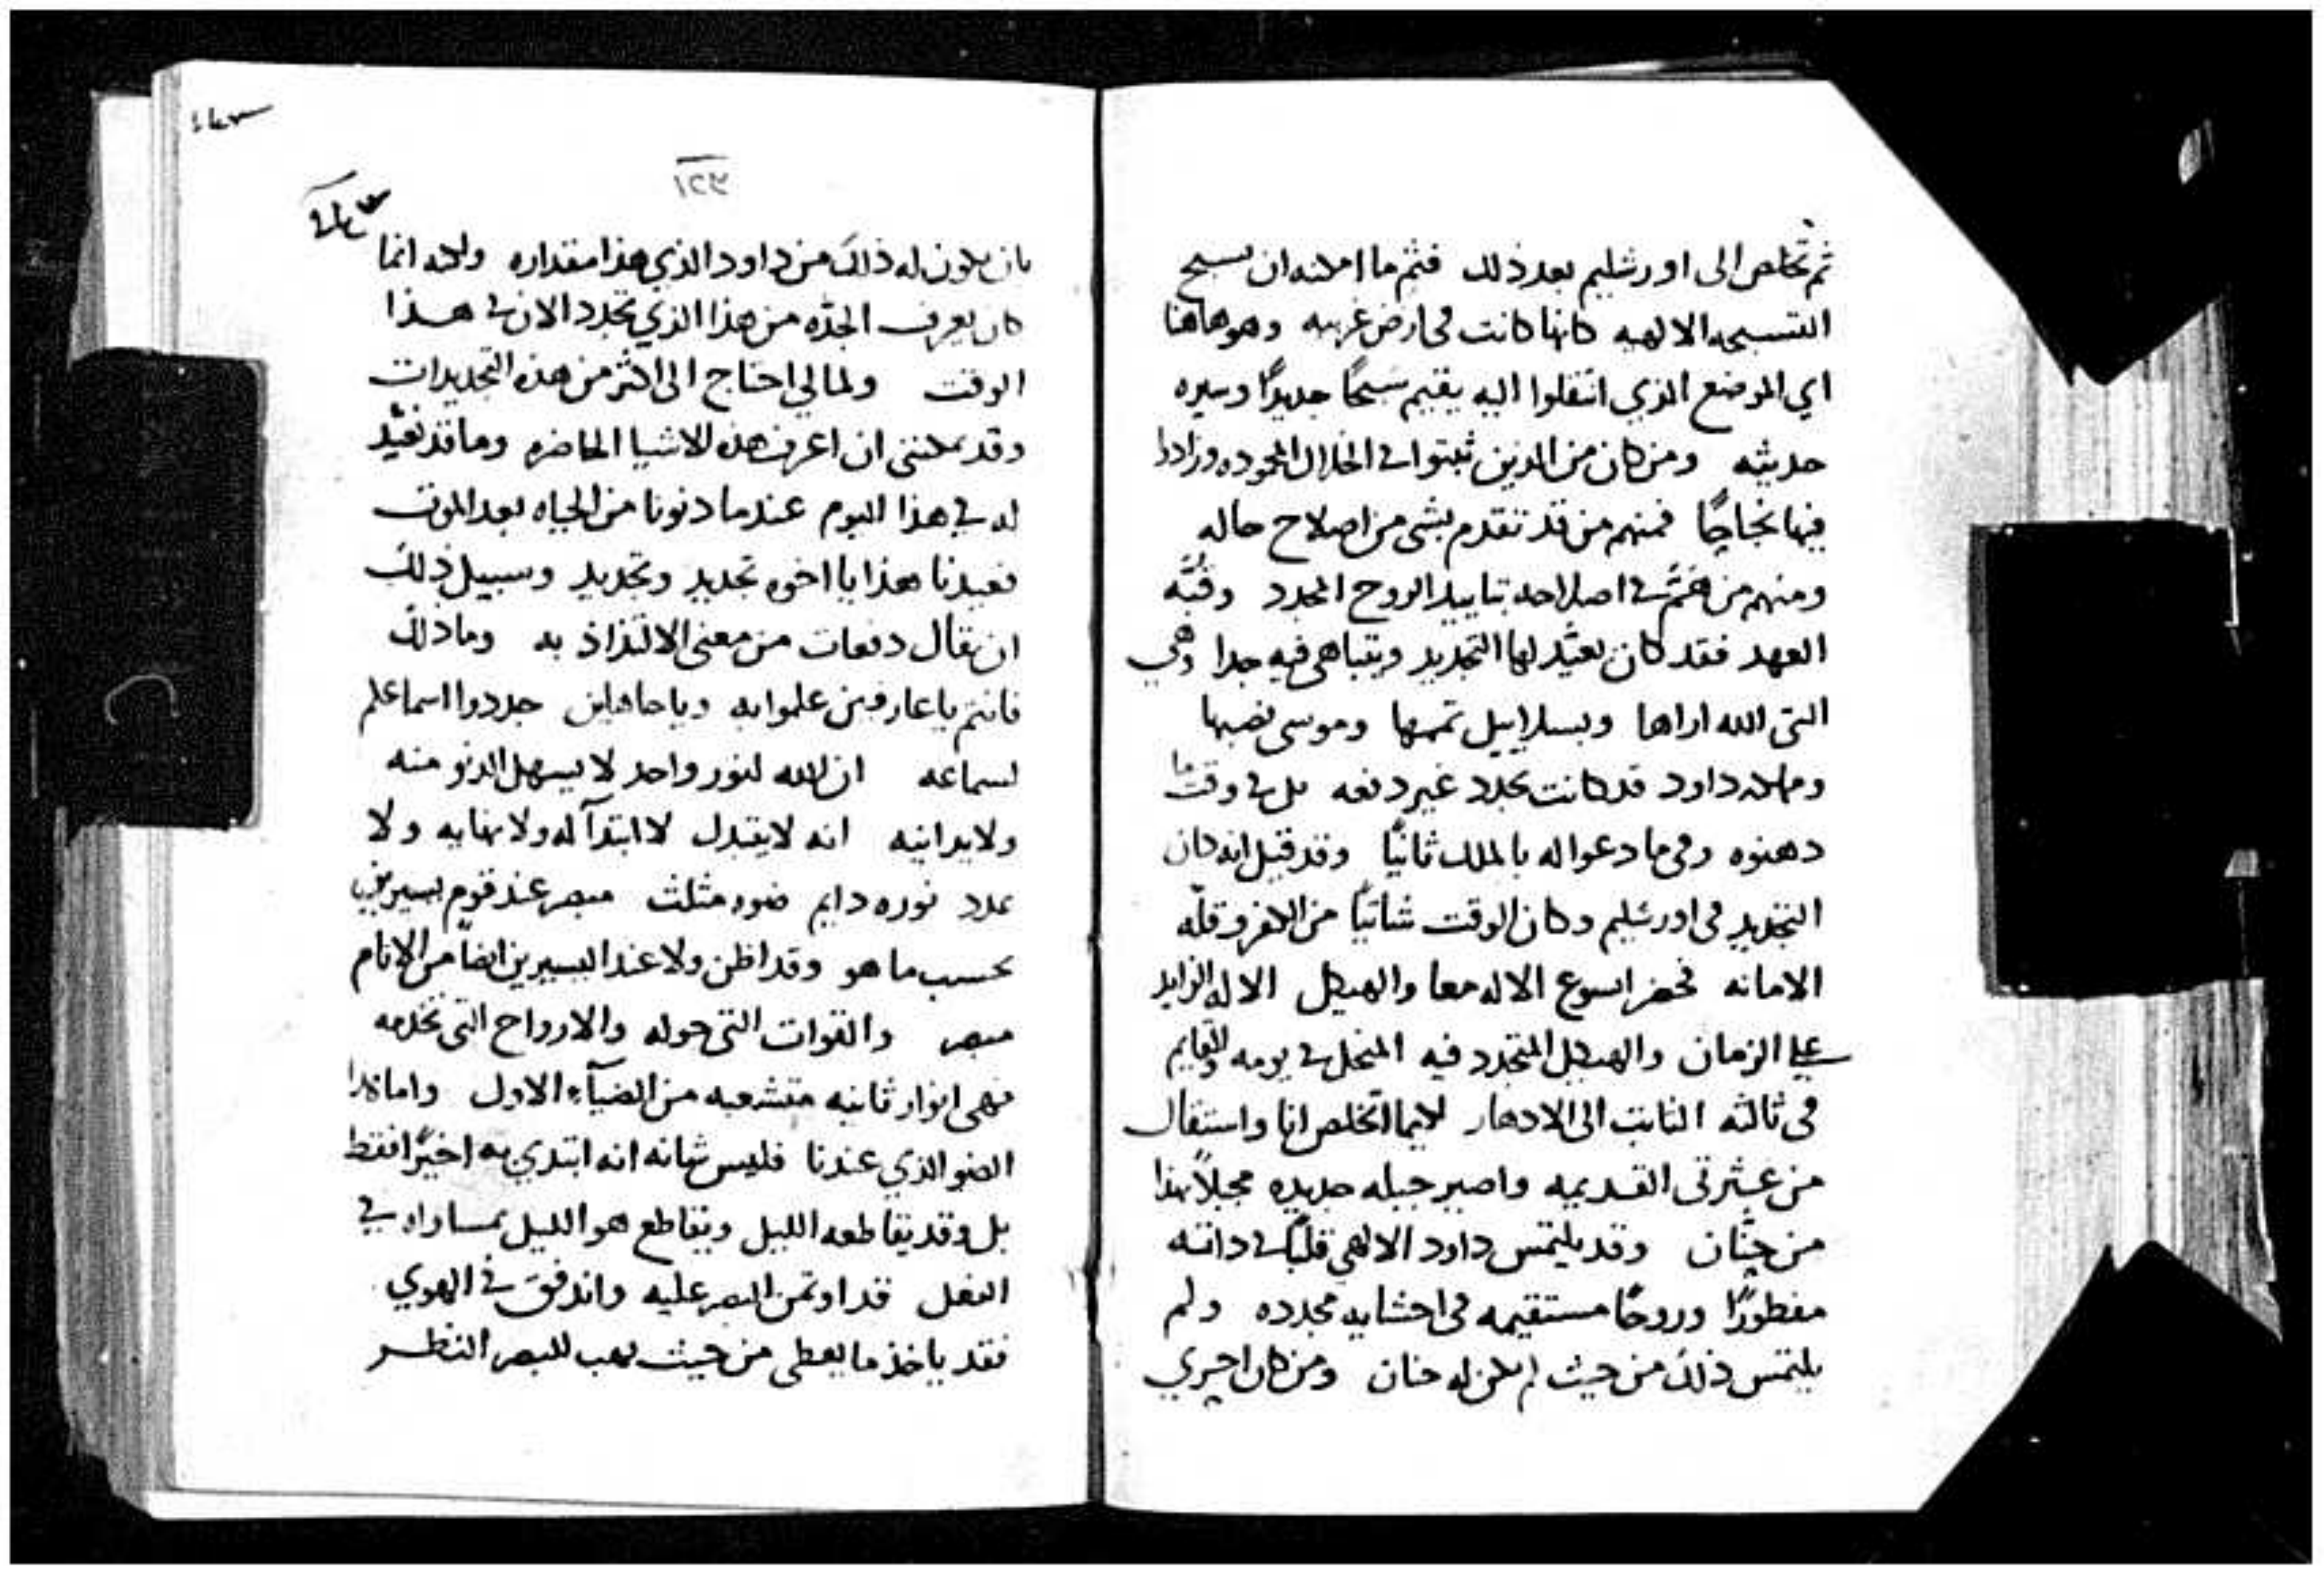 ثم تخلص الى اورشليم بعد ذلك فثم ما امكنه ان يسبح
التسبحه الالهيه كانها كانت فى ارض غريبه وهو هاهنا
اي الموضع الذي انتقلوا اليه يقيم سبحًا جديدًا وسيره
حديثه ومن كان من الذين ثبتوا في الخلال المحموده وزادوا
فيها نجاحًا فمنهم من قد تقدم بشى من اصلاح حاله
ومنهم من في اصلاحه بتاييد الروح المجدد وقبّه
العهد فقد كان يعيّد لها التجديد ويتباهى فيه جدا وهي
التى الله اراها وبسلاييل تممها وموسى نصبها
ومملكه داود قد كانت تجدد غير دفعه بل في وقت ما
دهنوه وفى ما دعوا له بالملك ثانيًا وقد قيل انه كان
التجديد فى اورشليم وكان الوقت شاتيًا من الكفر وقلّه
الامانه فحضر ايسوع الاله معا والهيكل الاله الزايد
على الزمان والهيكل المتجدد فيه المنحل في يومه والقايم
فى ثالثه الثابت الى الادهار لكيما اتخلص انا واستقال
من عثرتى القديمه واصير جبله جديده مجبلاً بهذا
من حنان وقد يلتمس داود الالهي قلبًا في ذاته
مفطورًا وروحًا مستقيمه فى احشايه مجدده ولم
يلتمس ذلك من حيث لم يكن له حنان ومن كان احرى
١٢٣
بان يكون له ذلك من داود الذي هذا مقداره ولكنه انما
كان يعرف الجدّه من هذا الذي تجدد الان في هذا
الوقت ولما لي احتاج الى اكثر من هذه التجديدات
وقد يمكننى ان اعرف هذه الاشيا الحاضره وما قد نعيّد
له في هذا اليوم عندما دنونا من الحياه بعد الموت
فعيدنا هذا يا اخوه تجديد وتجديد وسبيل ذلك
ان يقال دفعات من معنى الالتذاذ به وما ذلك
فانتم يا عارفين علموا به ويا جاهلين جددوا اسماعكم
لسماعه ان الله لنور واحد لا يسهل الدنو منه
ولا يدانيه انه لا يتبدل لا ابتدآ له ولا نهايه ولا
عدد نوره دايم ضوه مثلث مبصر عند قوم يسيرين
بحسب ما هو وقد اظن ولا عند اليسيرين ايضًا من الانام
مبصر والقوات التى حوله والارواح التى تخدمه
فهى انوار ثانيه متشعبه من الضيآء الاول واما هذا
الضو الذي عندنا فليس شانه انه ابتدي به اخيرًا فقط
بل وقد يقاطعه الليل ويقاطع هو الليل بمساواه في
الفعل قد اوتمن البصر عليه واندفق في الهوي
فقد ياخذ ما يعطى من حيث يهب للبصر النظر